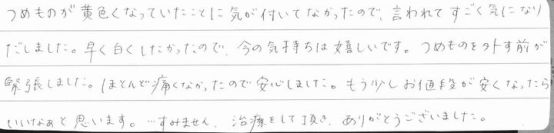 つめものが黄色くなっていたことに気が付いてなかったので、言われてすごく気になり
だしました。早く白くしたかったので、今の気持ちは嬉しいです。つめものを外す前が
緊張しました。ほとんど痛くなかったので安心しました。もう少しお値段が安くなったら
いいなぁと思います。…すみません。治療をして頂き、ありがとうございました。